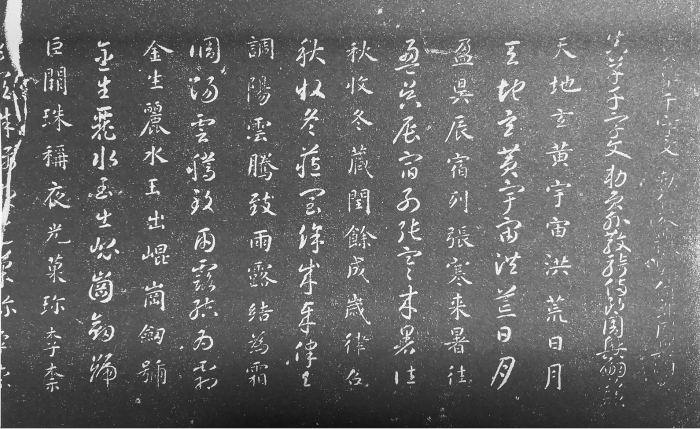 千字文
真草千字文勅員外散騎侍郎周興嗣次韻
天地玄黃宇宙洪荒日月
天地玄黃宇宙洪荒日月
盈昃辰宿列張寒来暑往
盈昃辰宿列張寒来暑往
秋收冬藏閏餘成歲律呂
秋收冬藏閏餘成歲律呂
調陽雲騰致雨露結為霜
調陽雲騰致雨露結為霜
金生麗水玉出崐崗劒號
金生麗水玉出崐崗劒號
巨闕珠稱夜光菓珍李柰